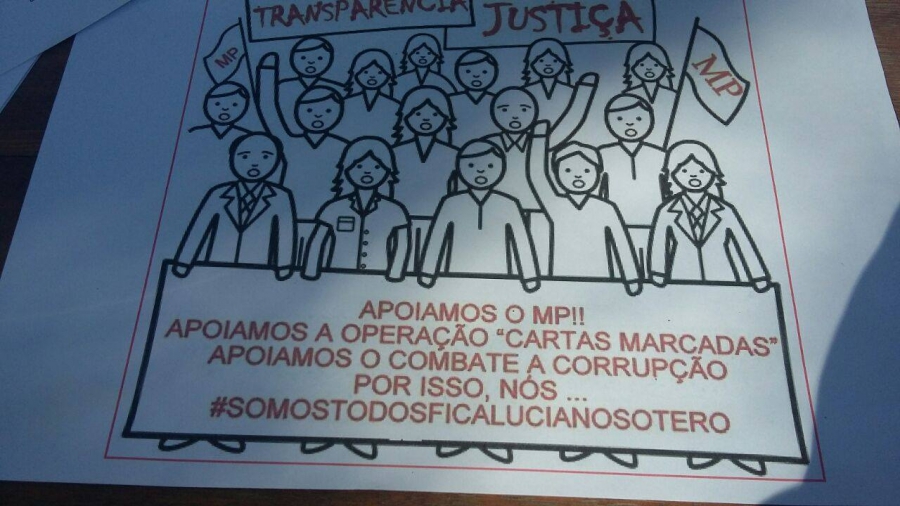 TRANSPARÊNCIA
JUSTIÇA
MP
MP
APOIAMOS O MP!!
APOIAMOS A OPERAÇÃO “CARTAS MARCADAS”
APOIAMOS O COMBATE A CORRUPÇÃO
POR ISSO, NÓS ...
#SOMOSTODOSFICALUCIANOSOTERO